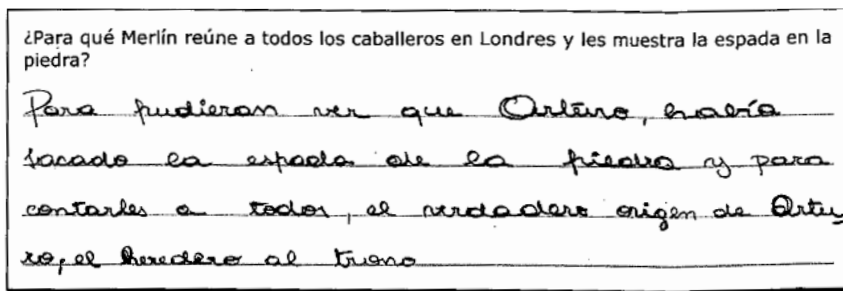 ¿Para qué Merlín reúne a todos los caballeros en Londres y les muestra la espada en la
piedra?
Para pudieran ver que Arturo, había
sacado la espada de la piedra y para
contarles a todos, el verdadero origen de Artu
ro, el heredero al trono